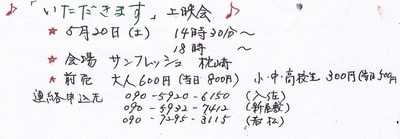 ♪「いただきます」上映会 ♪
★ 6月20日(土) 14時30分〜
18時 〜
★ 会場 サンフレッシュ 枕崎
★ 前売 大人600円(当日800円) 小・中・高校生 300円(当日500円)
連絡申込先 090-5920-6150 (入佐)
090-5932-7412 (新屋敷)
090-7295-3115 (若松)